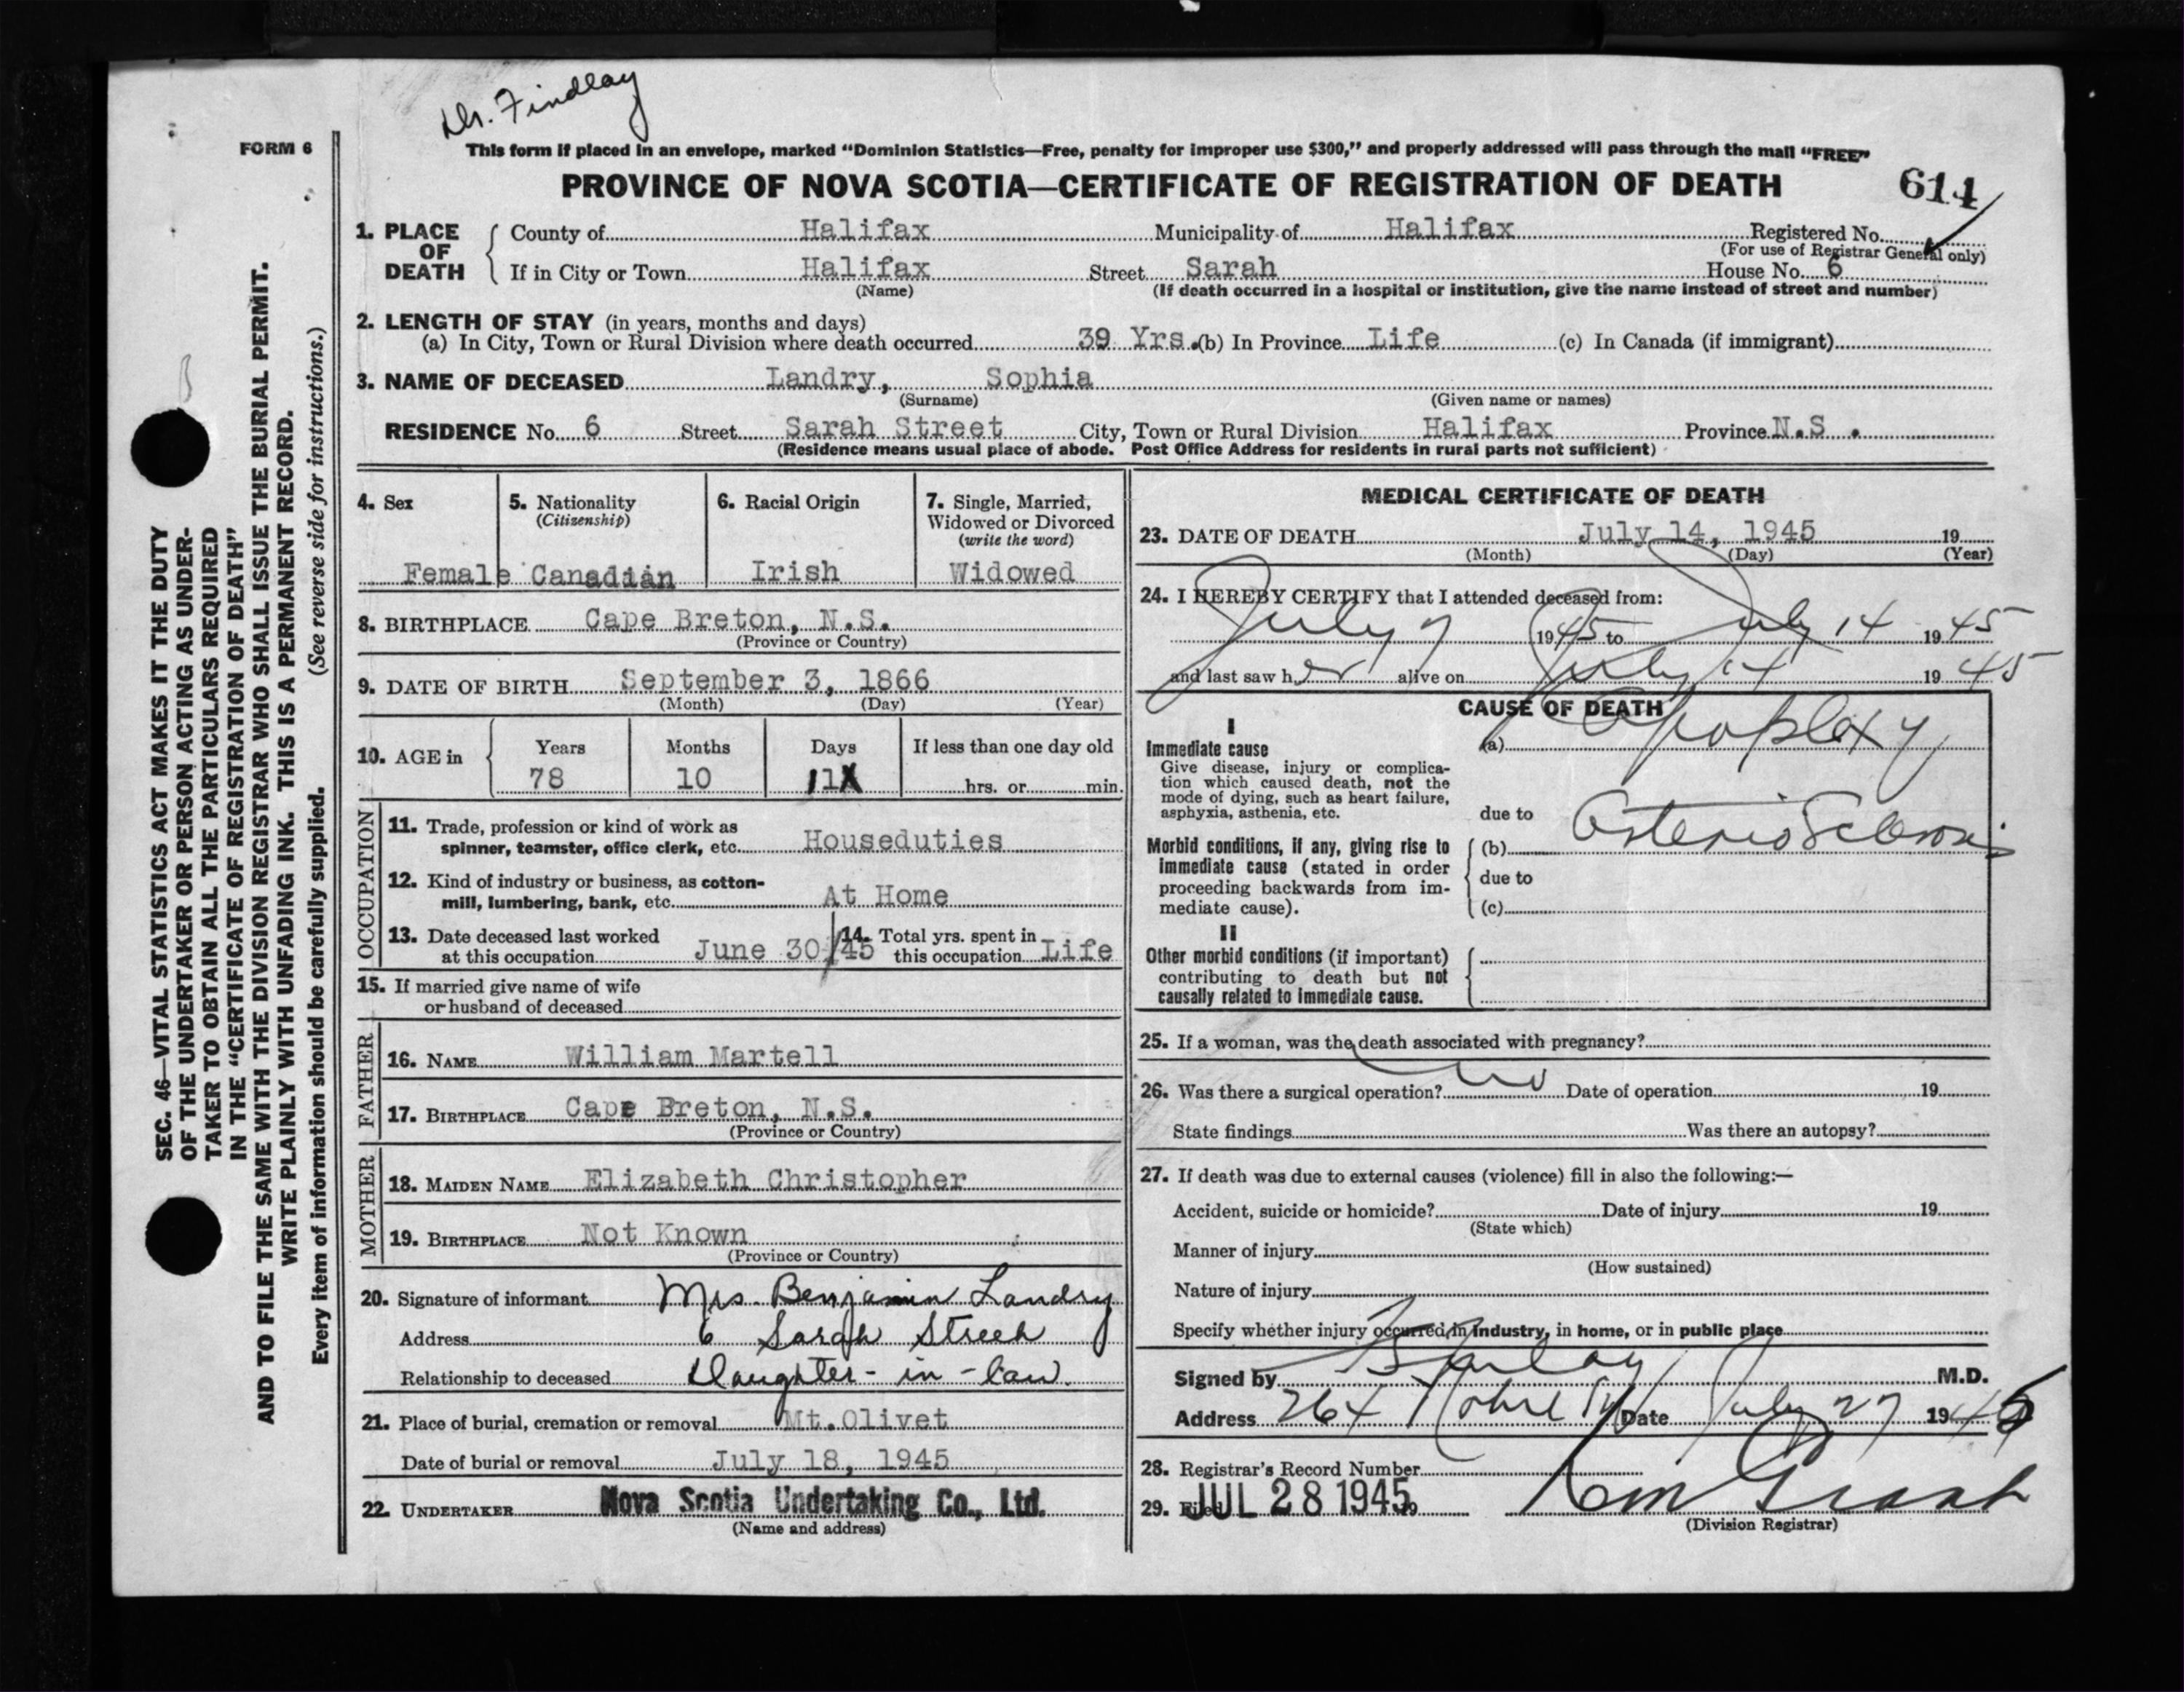 Dr. Findlay
FORM 6
This form if placed in an envelope, marked "Dominion Statistics—Free, penalty for improper use $300," and properly addressed will pass through the mail "FREE"
PROVINCE OF NOVA SCOTIA—CERTIFICATE OF REGISTRATION OF DEATH
614
1. PLACE OF DEATH
County of Halifax Municipality of Halifax Registered No.
(For use of Registrar General only)
If in City or Town Halifax Street Sarah House No. 6
(Name) (If death occurred in a hospital or institution, give the name instead of street and number)
2. LENGTH OF STAY (in years, months and days)
(a) In City, Town or Rural Division where death occurred 39 Yrs. (b) In Province Life (c) In Canada (if immigrant)
3. NAME OF DECEASED Landry, Sophia
(Surname) (Given name or names)
RESIDENCE No. 6 Street Sarah Street City, Town or Rural Division Halifax Province N.S.
(Residence means usual place of abode. Post Office Address for residents in rural parts not sufficient)
4. Sex
Female
5. Nationality
(Citizenship)
Canadian
6. Racial Origin
Irish
7. Single, Married,
Widowed or Divorced
(write the word)
Widowed
8. BIRTHPLACE Cape Breton, N.S.
(Province or Country)
9. DATE OF BIRTH September 3, 1866
(Month) (Day) (Year)
10. AGE in
Years Months Days If less than one day old
78 10 11 hrs. or min.
OCCUPATION
11. Trade, profession or kind of work as
spinner, teamster, office clerk, etc. Houseduties
12. Kind of industry or business, as cotton-
mill, lumbering, bank, etc. At Home
13. Date deceased last worked
at this occupation June 30/45
14. Total yrs. spent in
this occupation Life
15. If married give name of wife
or husband of deceased
FATHER
16. NAME William Martell
17. BIRTHPLACE Cape Breton, N.S.
(Province or Country)
MOTHER
18. MAIDEN NAME Elizabeth Christopher
19. BIRTHPLACE Not Known
(Province or Country)
20. Signature of informant Mrs. Benjamin Landry
Address 6 Sarah Street
Relationship to deceased Daughter-in-law.
21. Place of burial, cremation or removal Mt. Olivet
Date of burial or removal July 18, 1945
22. UNDERTAKER Nova Scotia Undertaking Co., Ltd.
(Name and address)
MEDICAL CERTIFICATE OF DEATH
23. DATE OF DEATH July 14, 1945 19
(Month) (Day) (Year)
24. I HEREBY CERTIFY that I attended deceased from:
July 7 1945 to July 14 1945
and last saw her alive on July 14 1945
CAUSE OF DEATH
I
Immediate cause
Give disease, injury or complica-
tion which caused death, not the
mode of dying, such as heart failure,
asphyxia, asthenia, etc.
(a) Apoplexy
due to
Morbid conditions, if any, giving rise to
immediate cause (stated in order
proceeding backwards from im-
mediate cause).
(b) Arterio Sclerosis
due to
(c)
II
Other morbid conditions (if important)
contributing to death but not
causally related to immediate cause.
25. If a woman, was the death associated with pregnancy?
26. Was there a surgical operation? no Date of operation 19
State findings Was there an autopsy?
27. If death was due to external causes (violence) fill in also the following:—
Accident, suicide or homicide? Date of injury 19
(State which)
Manner of injury
(How sustained)
Nature of injury
Specify whether injury occurred in industry, in home, or in public place
Signed by M.D.
Address 264 Date July 27 1945
28. Registrar's Record Number
29. Filed JUL 28 1945 19
(Division Registrar)
SEC. 46—VITAL STATISTICS ACT MAKES IT THE DUTY
OF THE UNDERTAKER OR PERSON ACTING AS UNDER-
TAKER TO OBTAIN ALL THE PARTICULARS REQUIRED
IN THE "CERTIFICATE OF REGISTRATION OF DEATH"
AND TO FILE THE SAME WITH THE DIVISION REGISTRAR WHO SHALL ISSUE THE BURIAL PERMIT.
WRITE PLAINLY WITH UNFADING INK. THIS IS A PERMANENT RECORD.
Every item of information should be carefully supplied. (See reverse side for instructions.)